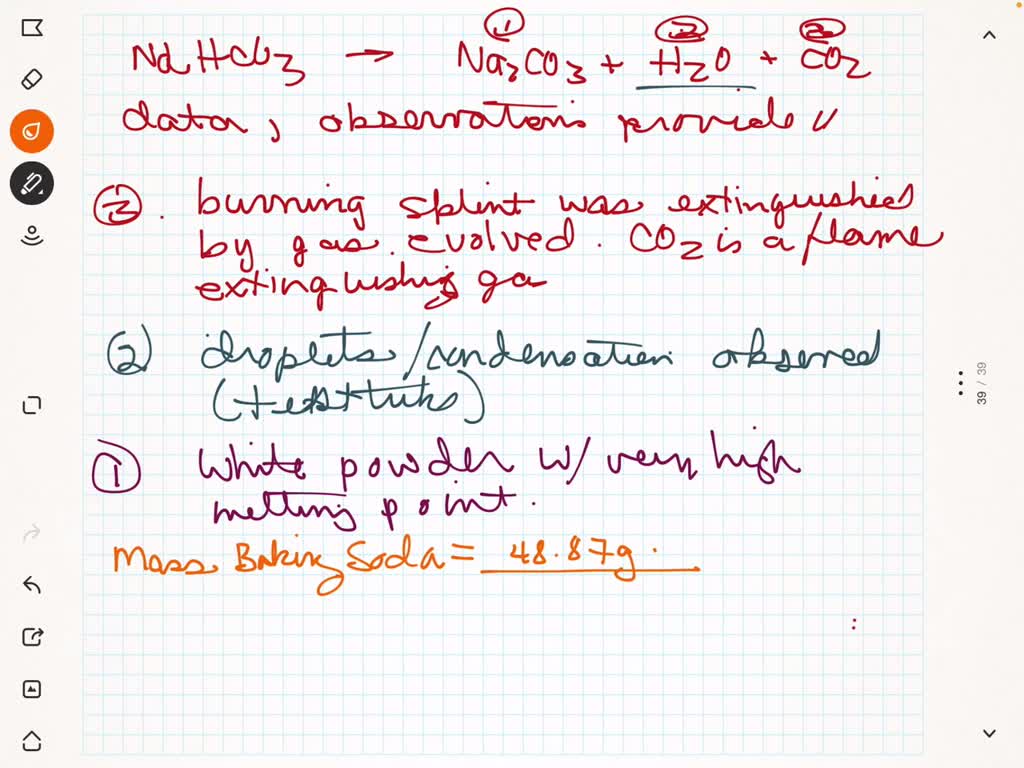 ① ② ③
NaHCO3 → Na2CO3 + H2O + CO2
data, observations provide "
③. burning splint was extinguished
by gas evolved. CO2 is a flame
extinguishing ga
② droplets/condensation observed
(testtubs)
① White powder w/ very high
melting point.
Mass Baking Soda = 48.87g.
:
39 / 39